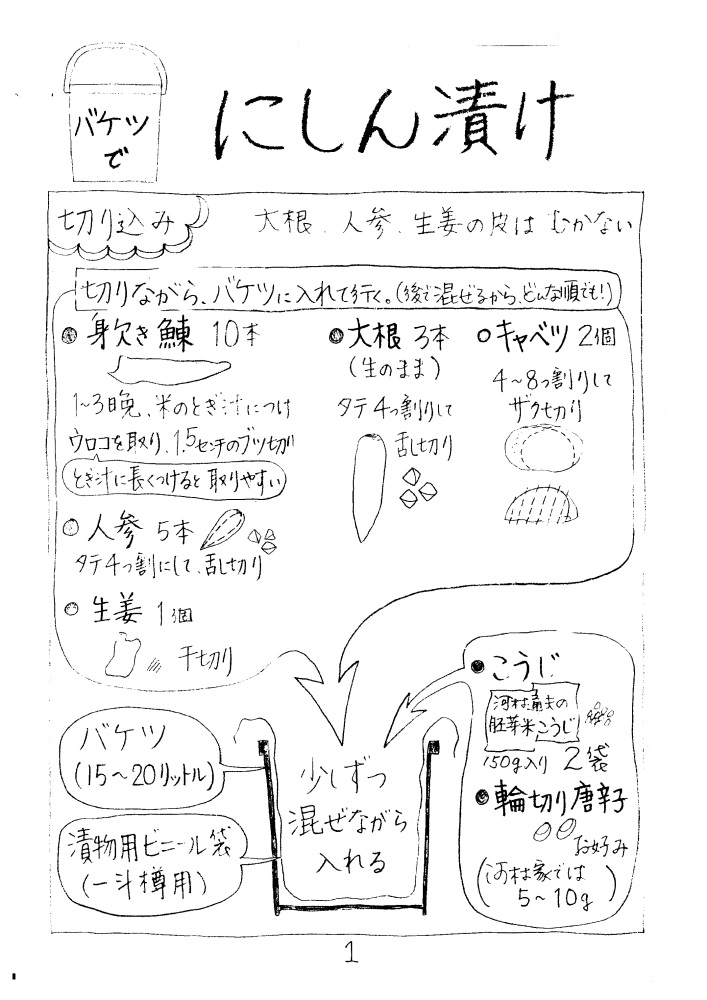 バケツ
で
にしん漬け
切り込み
大根、人参、生姜の皮は むかない
切りながら、バケツに入れて行く。(後で混ぜるから、どんな順でも!)
身欠き鰊 10本
1~3晩、米のとぎ汁につけ
ウロコを取り、1.5センチのブツ切り
とぎ汁に長くつけると 取りやすい
大根 3本
(生のまま)
タテ4つ割りして
乱切り
キャベツ 2個
4~8つ割りして
ザク切り
人参 5本
タテ4つ割にして、乱切り
生姜 1個
千切り
こうじ
河村竜夫の
胚芽米こうじ
150g入り 2袋
輪切り唐辛子
お好み
(河村家では
5~10g)
バケツ
(15~20リットル)
漬物用ビニール袋
(一斗樽用)
少しずつ
混ぜながら
入れる
1